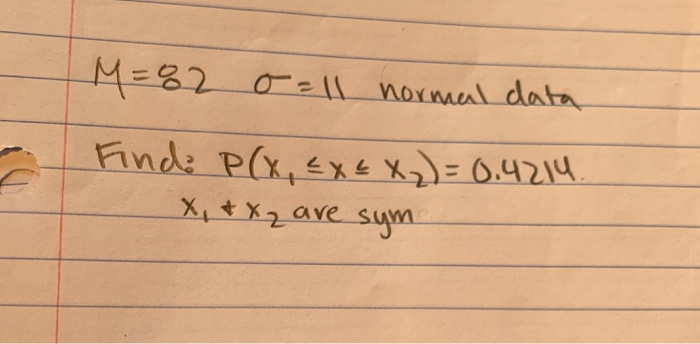 M=82 σ=11 normal data
Find: P(x₁ ≤ x ≤ x₂) = 0.4214.
x₁ + x₂ are sym